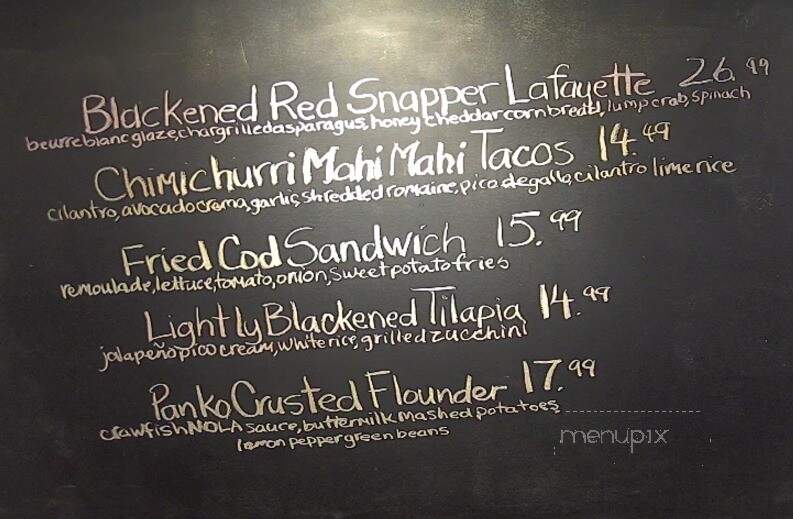 Blackened Red Snapper Lafayette 26.99
beurre blanc glaze, chargrilled asparagus, honey cheddar cornbread, lump crab, spinach
Chimichurri Mahi Mahi Tacos 14.49
cilantro, avocado crema, garlic, shredded romaine, pico de gallo, cilantro lime rice
Fried Cod Sandwich 15.99
remoulade, lettuce, tomato, onion, sweet potato fries
Lightly Blackened Tilapia 14.99
jalapeño pico cream, white rice, grilled zucchini
Panko Crusted Flounder 17.99
crawfish NOLA sauce, buttermilk mashed potatoes
lemon pepper green beans
menupix